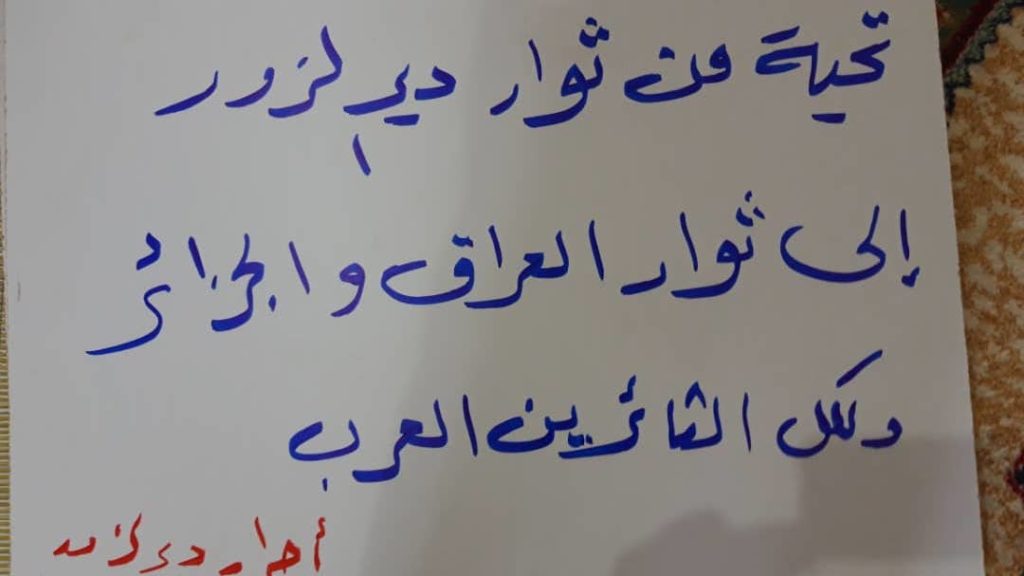 تحية من ثوار دير الزور
إلى ثوار العراق والجزائر
ولكل الثائرين العرب
أحرار